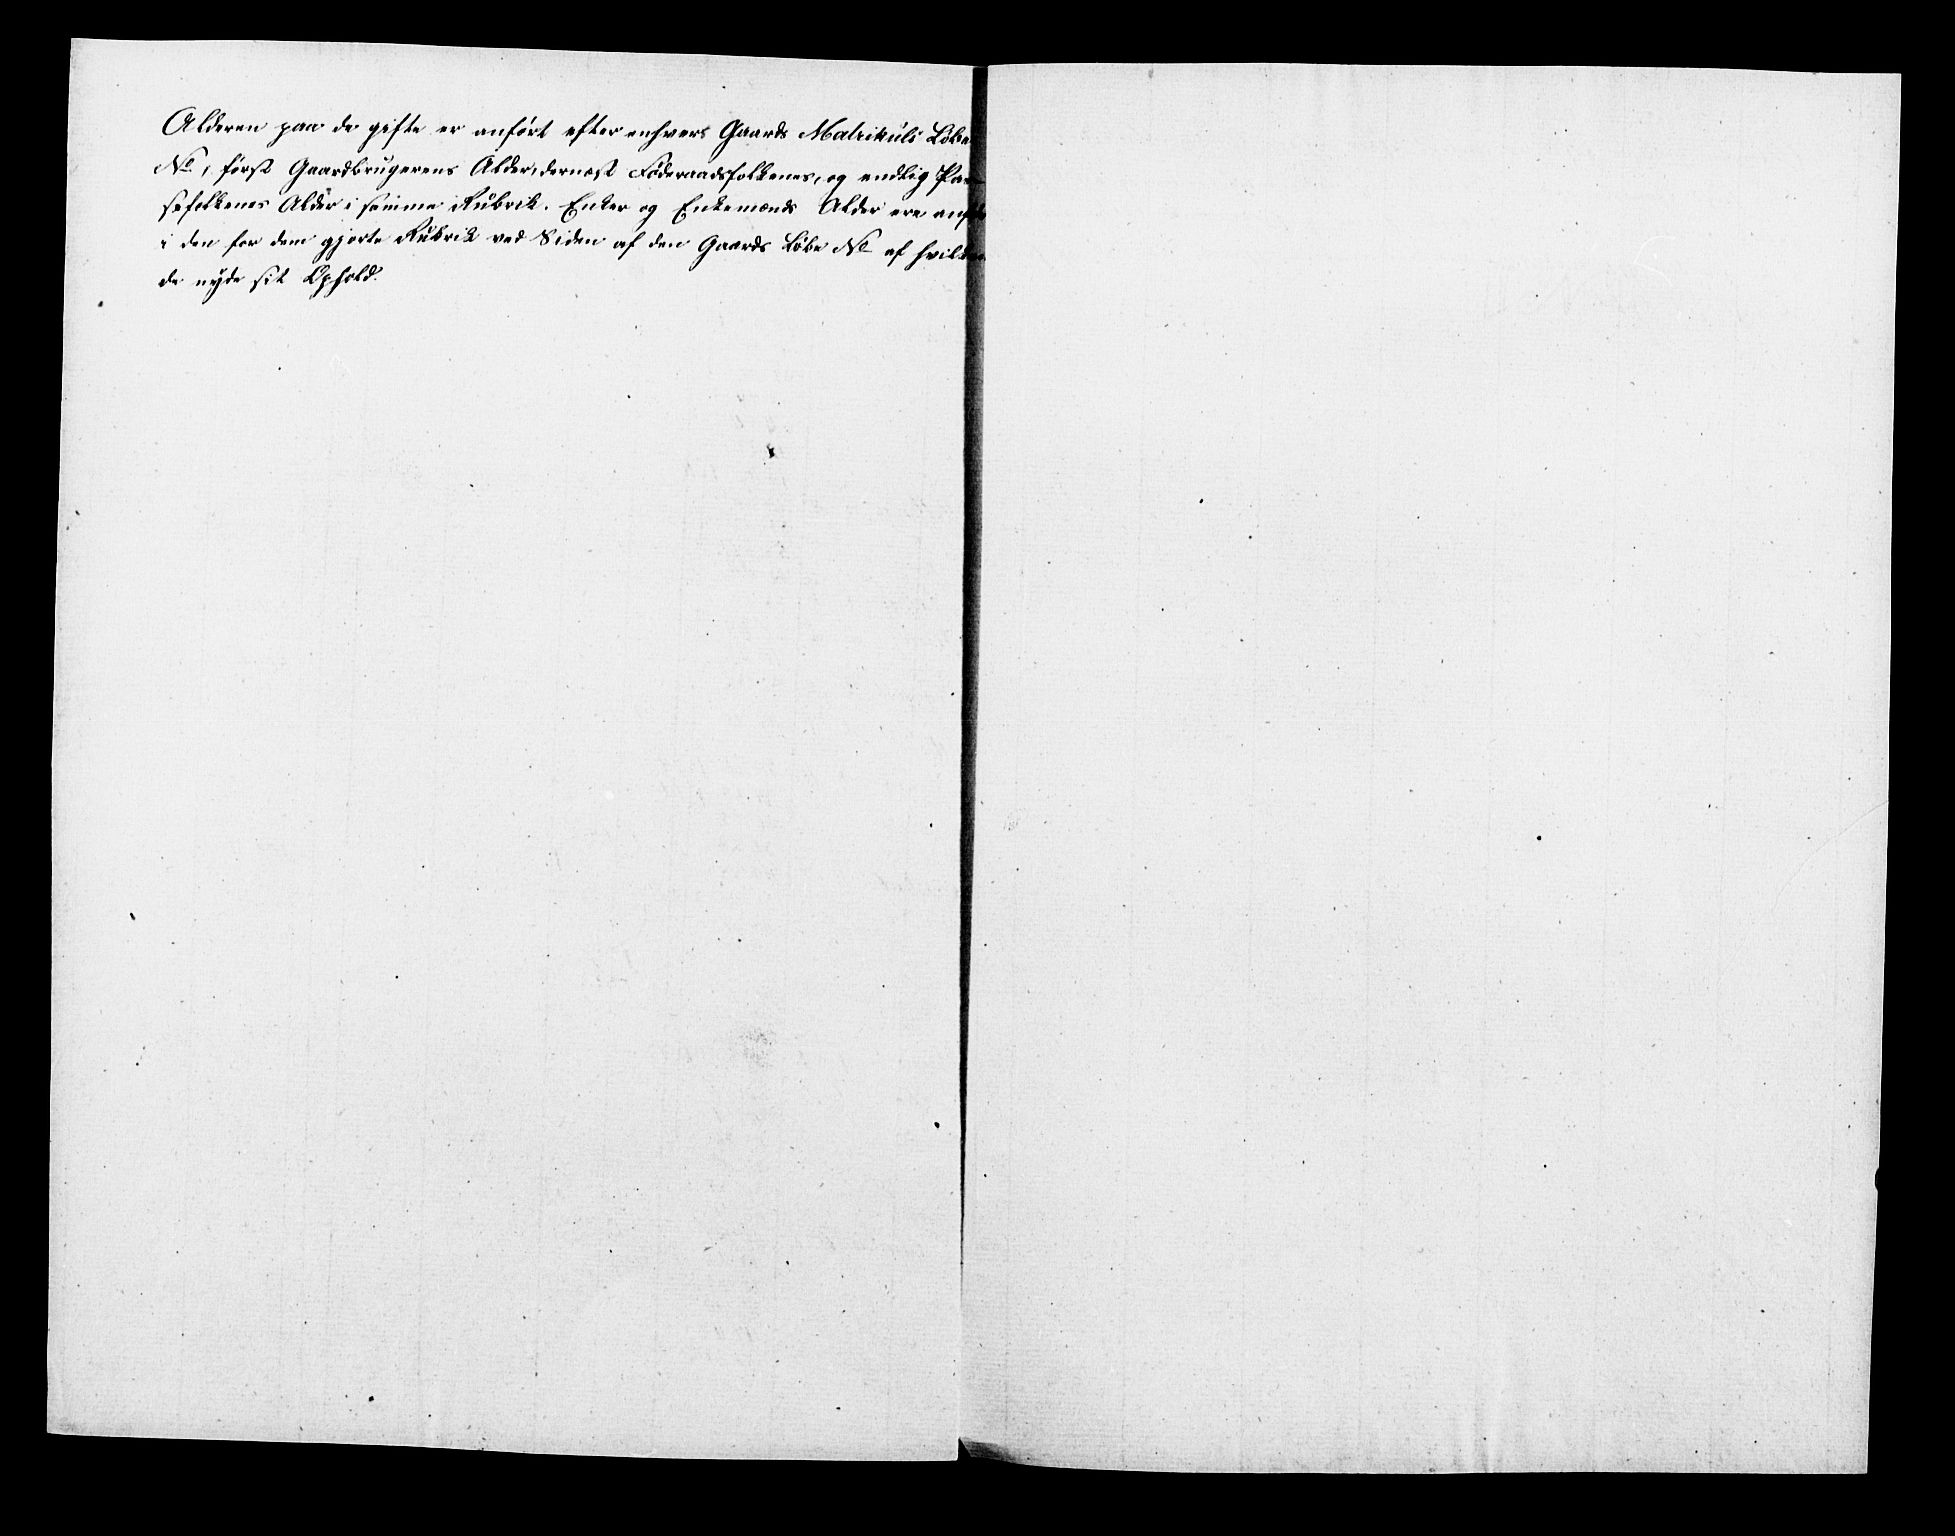 Alderen paa de gifte er anført efter enhvers Gaards Matrikuls Löbe
No, först Gaardbrugerens Alder, dernæst Föderaadsfolkenes, og endlig
sefolkenes Alder i samme Rubrik. Enker og Enkemænds Alder ere
i den for dem gjorte Rubrik ved Siden af den Gaards Löbe No af
de nyde sit Ophold.